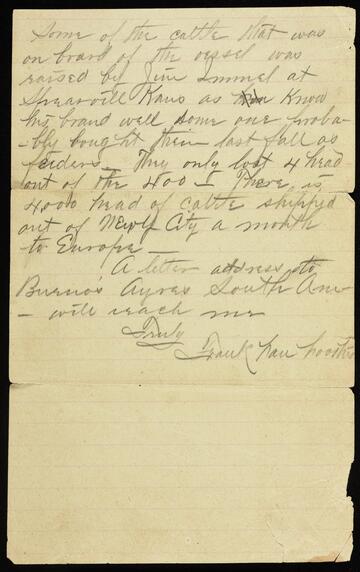 Some of the cattle that was
on board of the vessel was
raised by Jim Immel at
Spearvill Kans as I know
his brand well some one proba-
-bly bought them last fall as
feeders — They only lost 4 head
out of the 400 — There is
4000 head of cattle shipped
out of City a month
to Europe —
A letter address to
Bueno's Ayres South Am
- will reach me
Truly
Frank Van